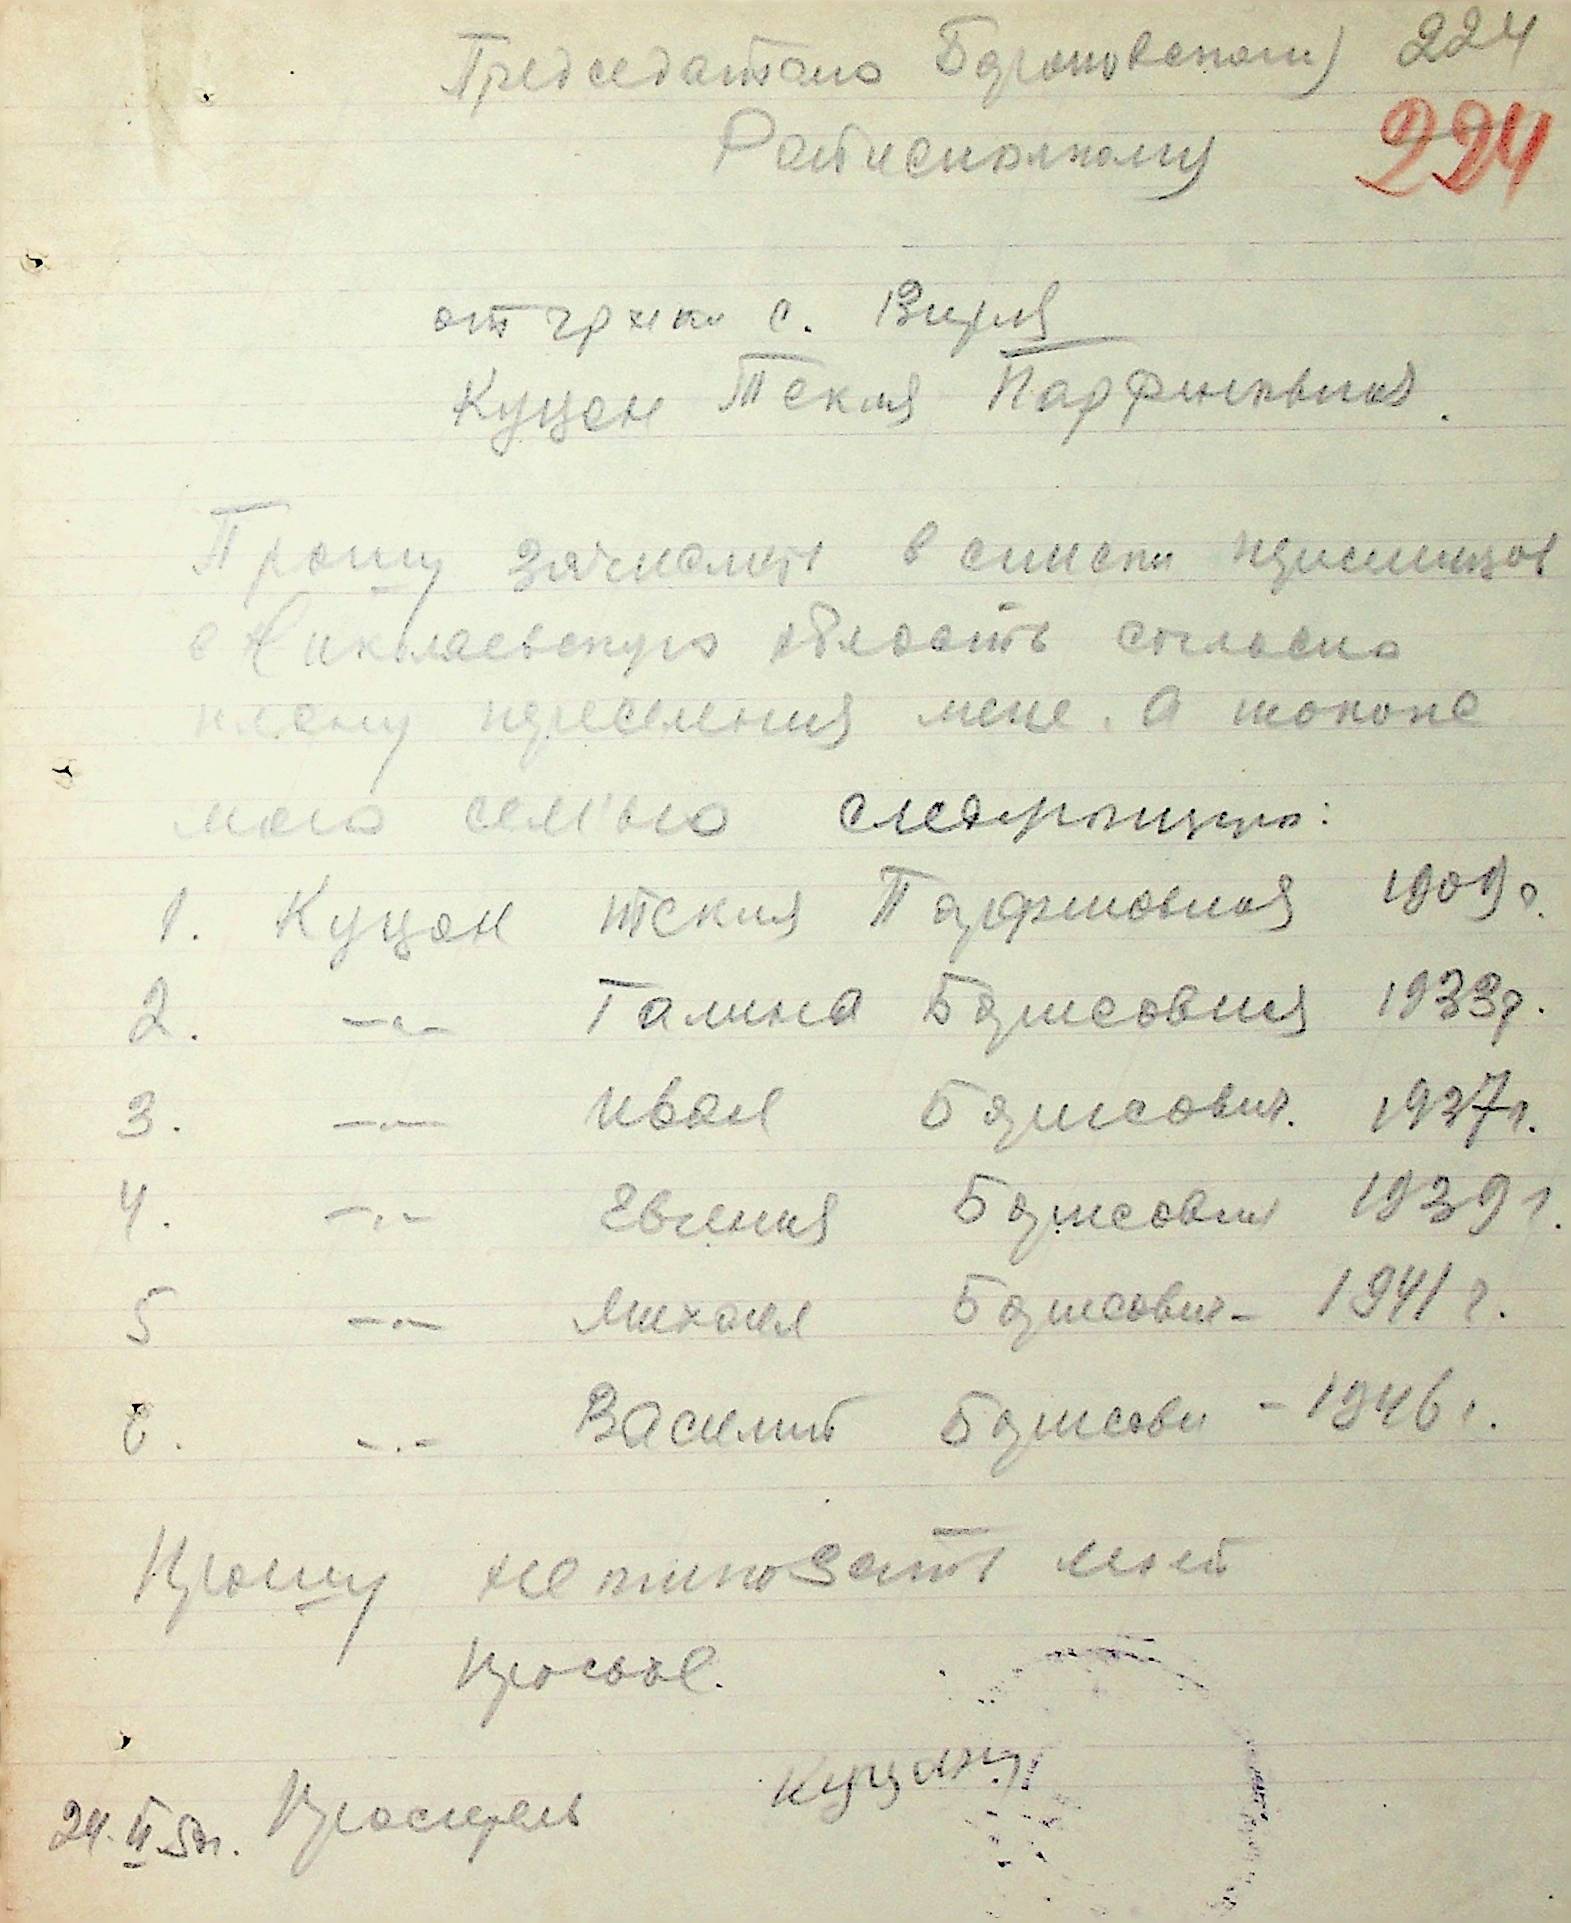 Председателю 224
Райисполкому 224
от гр-ки с. Виря
Куцан Текля Парфеновная.
Прошу зачислить в списки переселенцов
в Николаевскую область согласно
плану переселения мене. А также
мою сем'ью следующую:
1. Куцан Текля Парфеновная 1909г.
2. -"- Галина Борисовная 1933г.
3. -"- Иван Борисович. 1937г.
4. -"- Евгения Борисовна 1939г.
5 -"- Михаил Борисович - 1941г.
6. -"- Василий Борисови - 1946г.
Прошу не отказать моей
просьбе.
24.II.50г. Проситель Куцан